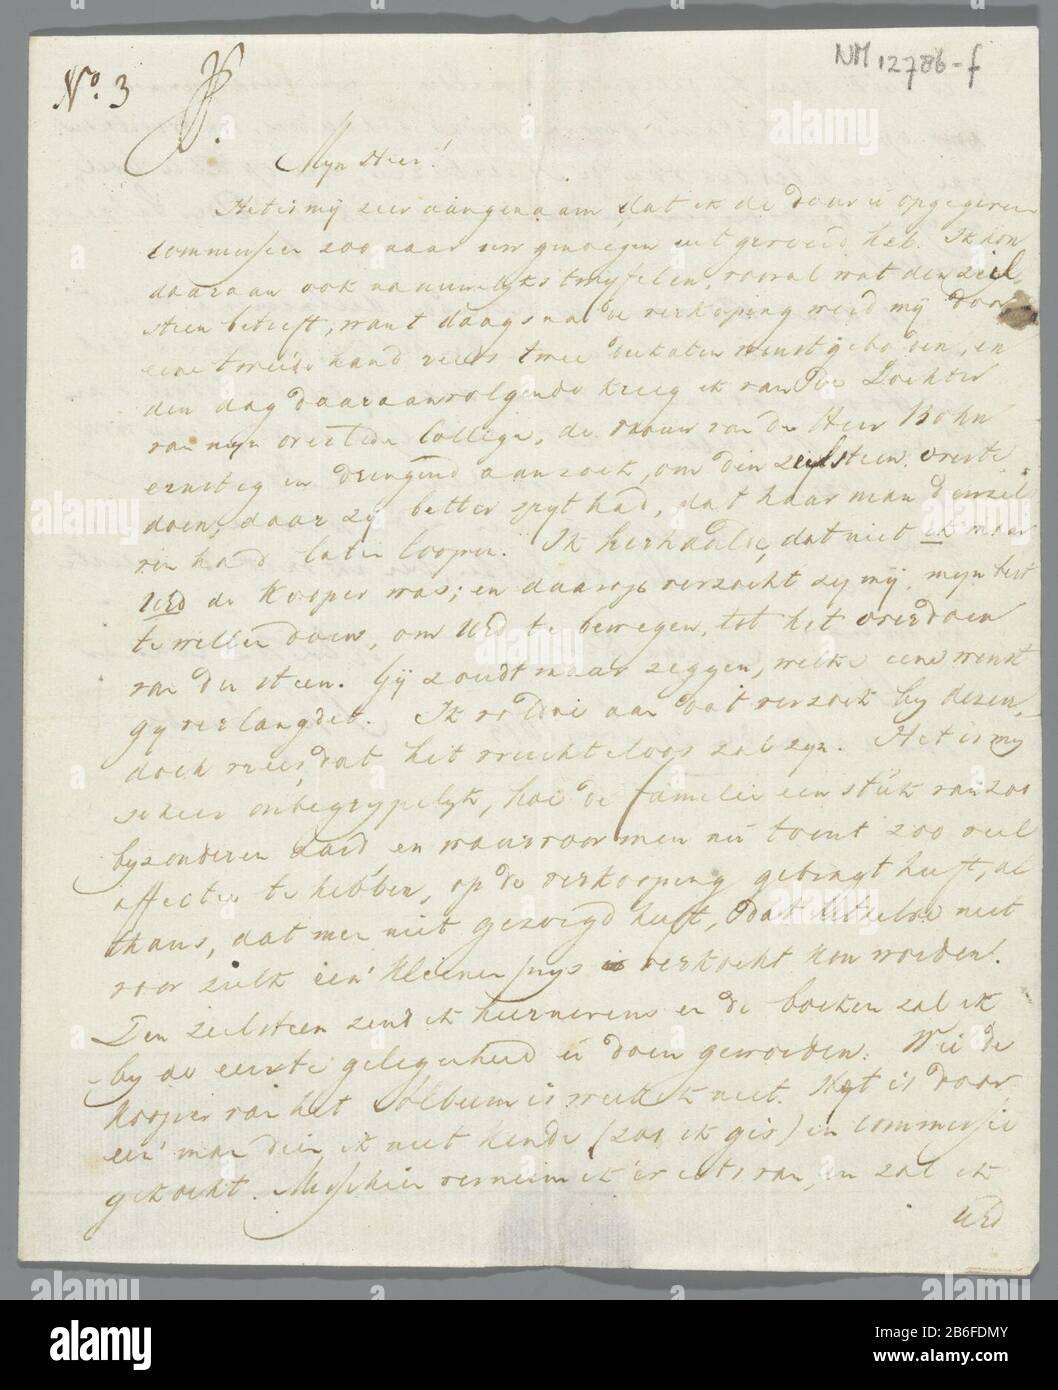 NM 12786-f
No. 3
Mijn Heer!
Het is mij zeer aangenaam, dat ik de door u opgegeven
commissien zoo naar uw genoegen uitgevoerd heb. Ik kon
daaraan ook naauwlyks twyfelen, vooral wat den zeil
steen betreft, want daags na de verkoping werd mij door
eene tweede hand reeds twee dukaten winst geboden, en
den dag daaraanvolgende kreeg ik van de Dochter
van myn overleden Collega, de vrouw van den Heer Bohn
ernstig en dringend aanzoek, om den zeylsteen overte
doen, daar zy bitter spyt had, dat haar man denzel
ven had laten loopen. Ik herhaalde, dat niet ik maar
UEd de Kooper was; en daarop verzocht zy mij, myn best
te willen doen, om UEd te bewegen, tot het overdoen
van den steen. Gij zoudt maar zeggen, welke eene winst
gy verlangdet. Ik voldoe aan dat verzoek by dezen,
doch vrees, dat het vruchteloos zal zyn. Het is my
zeker onbegrypelyk, hoe de familie een stuk van zoo
byzonderen aard en waarvoor men nu toont zoo veel
affectie te hebben, op de verkooping gebragt heeft, al
thans, dat men niet gezorgd heeft, dat hetzelve niet
voor zulk een kleinen prys verkocht kon worden!
Den zeilsteen zend ik hiernevens en de boeken zal ik
by de eerste gelegenheid u doen geworden. Wie de
Kooper van het Album is weet ik niet. Het is door
een' man dien ik niet kende (zoo ik gis) in commissie
gekocht. Misschien verneem ik 'er iets van, en zal ik
UEd
alamy
Image ID: 2B6FDMY
www.alamy.com